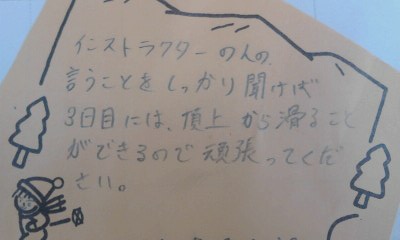 インストラクターの人の
言うことをしっかり聞けば
3日目には、頂上から滑ること
ができるので頑張ってくだ
さい。